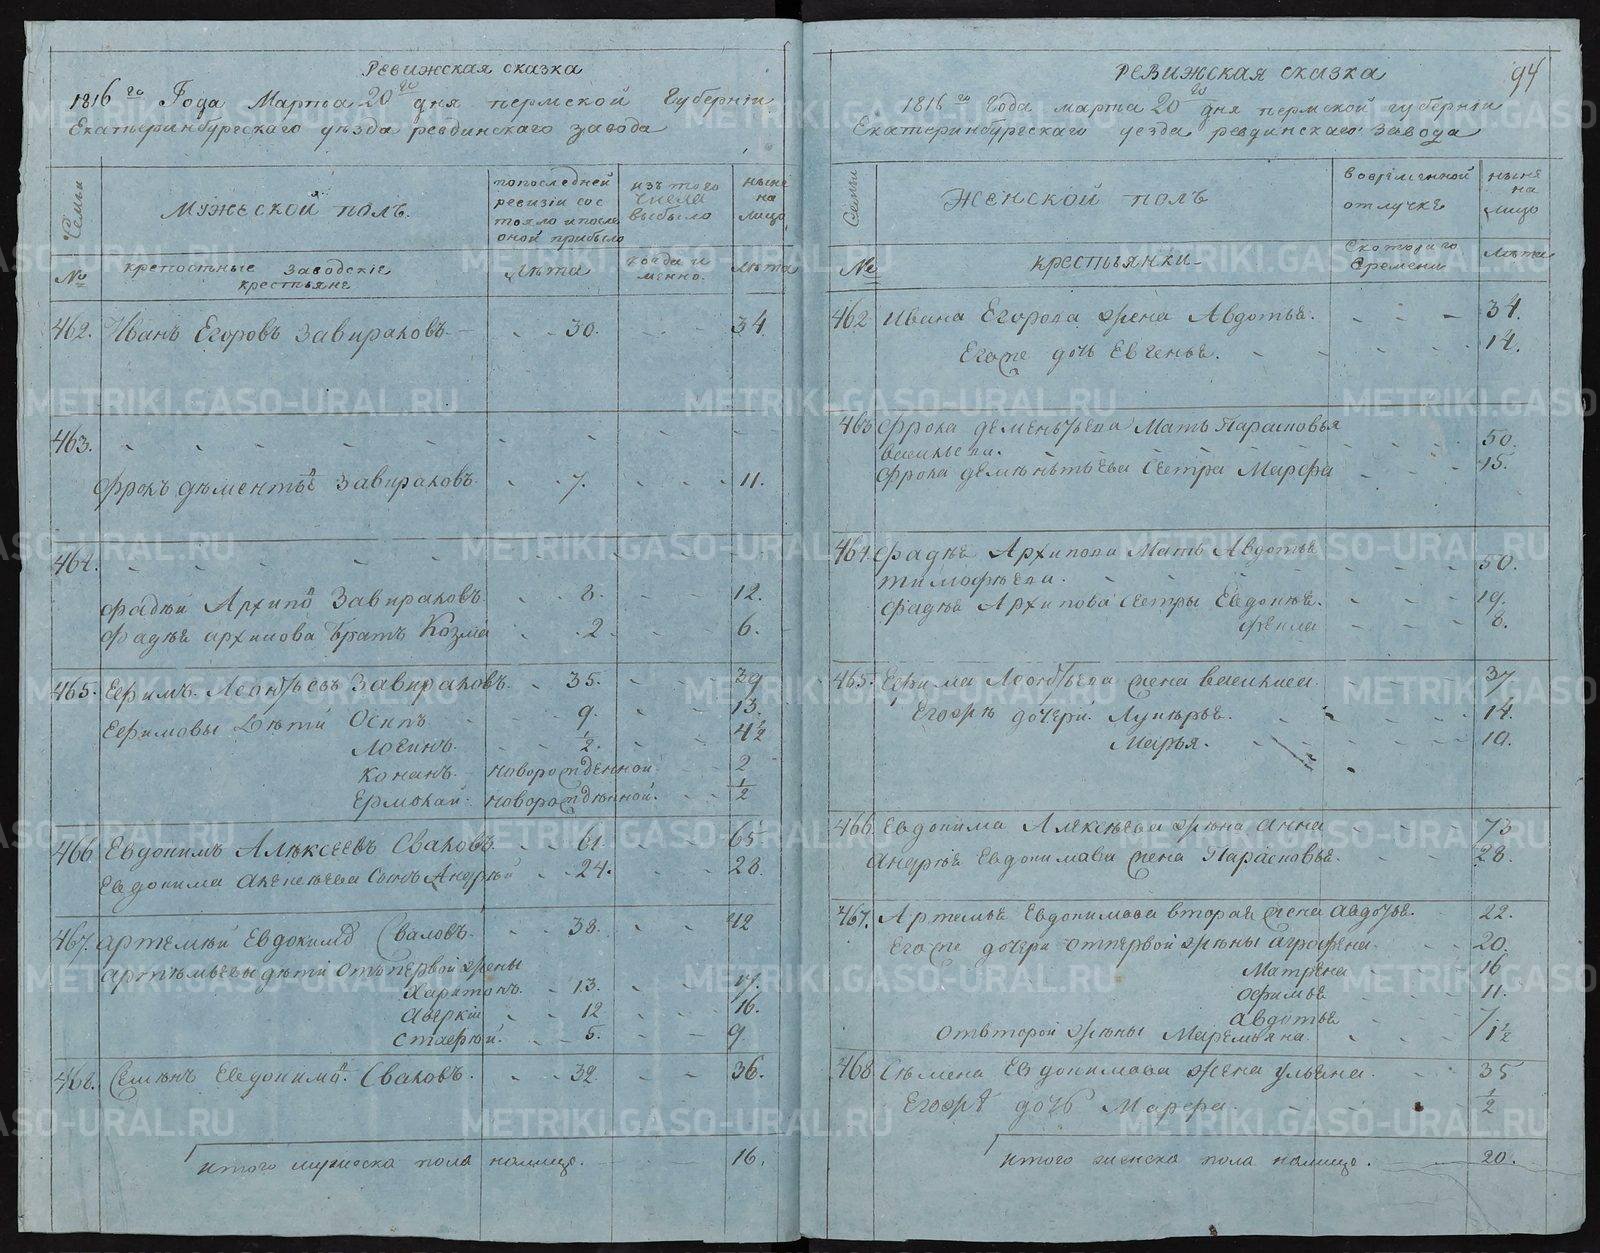 Ревижская сказка
1816го Года Марта 20го дня пермской Губерніи
Екатеринбургскаго уѣзда ревдинскаго завода
Семьи
Мужеской полъ.
попоследней ревизіи состояло и после оной прибыло
изъ того числа выбыло
ныне на лицо
№
крепостные заводскіе крестьяне
Лѣта
когда и менно.
лѣта
462. Иванъ Егоровъ Завираховъ - - 30. - - 34.
463.
Фролъ деменьтьевъ Завираховъ - - 7. - - - 11.
464.
Фадѣй Архиповъ Завираховъ - - 8. - - 12.
Фадѣе архипова братъ Козма - 2 - - 6.
465. Ефимъ Леонтьевъ Завираховъ. - 35. - - 39
Ефимовы дѣти Осипъ - - 9. - - 13.
Логинъ. - - 1/2. - - 4 1/2
Конанъ. - новорожденной - - 2
Ермолай. новорожденной. - - 1/2
466 Евдокимъ Алексеевъ Сваловъ - - 61. - - 65
Евдокима Алексеева Сынъ Андрей - - 24. - - 28.
467. Артемей Евдокимовъ Сваловъ. - 38. - - 42
артемьевы дѣти отпервой жены
Харитонъ. - 13. - - 17.
аверкій - - 12 - - 16.
Стафей. - - 5. - - 9.
468. Семенъ Евдокимовъ Сваловъ. - - 32. - - 36.
итого мужеска пола налицо. 16.
Ревижская сказка
94
1816го года марта 20го дня пермской губерніи
Екатеринбургскаго уезда ревдинскаго завода
Семьи
Женской полъ
вовременной отлучке
ныне на лицо
№
крестьянки
Скотораго времени
лѣта
462 Ивана Егорова жена Авдотья. - - - 34.
Егоже дочь Евгенья. - - - 14.
463 Фрола деменьтьева Мать Парасковья
васильева. - - - 50.
Фрола деменьтьева Сестра Марфа - - - 15.
464. Фадѣе Архипова Мать Авдотья
тимофеева. - - - 50.
Фадѣе Архипова Сестры Евдокея. - - - 19.
Фекла - - - 8.
465. Ефима Леонтьева жена василиса. - - - 37.
Егоже дочери. Лукерья. - - - 14.
Марья. - - - 10.
466 Евдокима Алексеева жена Анна - - - 73
Андрѣе Евдокимова жена Парасковья. - - 28.
467. Артемья Евдокимова вторая жена авдотья. 22.
Егоже дочери отпервой жены аграфена. - - 20.
Матрена - - - 16
офимья - - - 11.
авдотья - - - 7.
отвторой жены Маремьяна. - - 1 1/2
468 Семена Евдокимова жена ульяна. - - 35
Егоже дочь Марфа - - - 1/2
итого женска пола налицо. - - 20.
METRIKI.GASO-URAL.RU